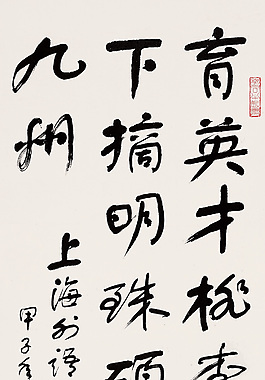 育英才桃李
下摘明珠
九州
上海外語
甲子年